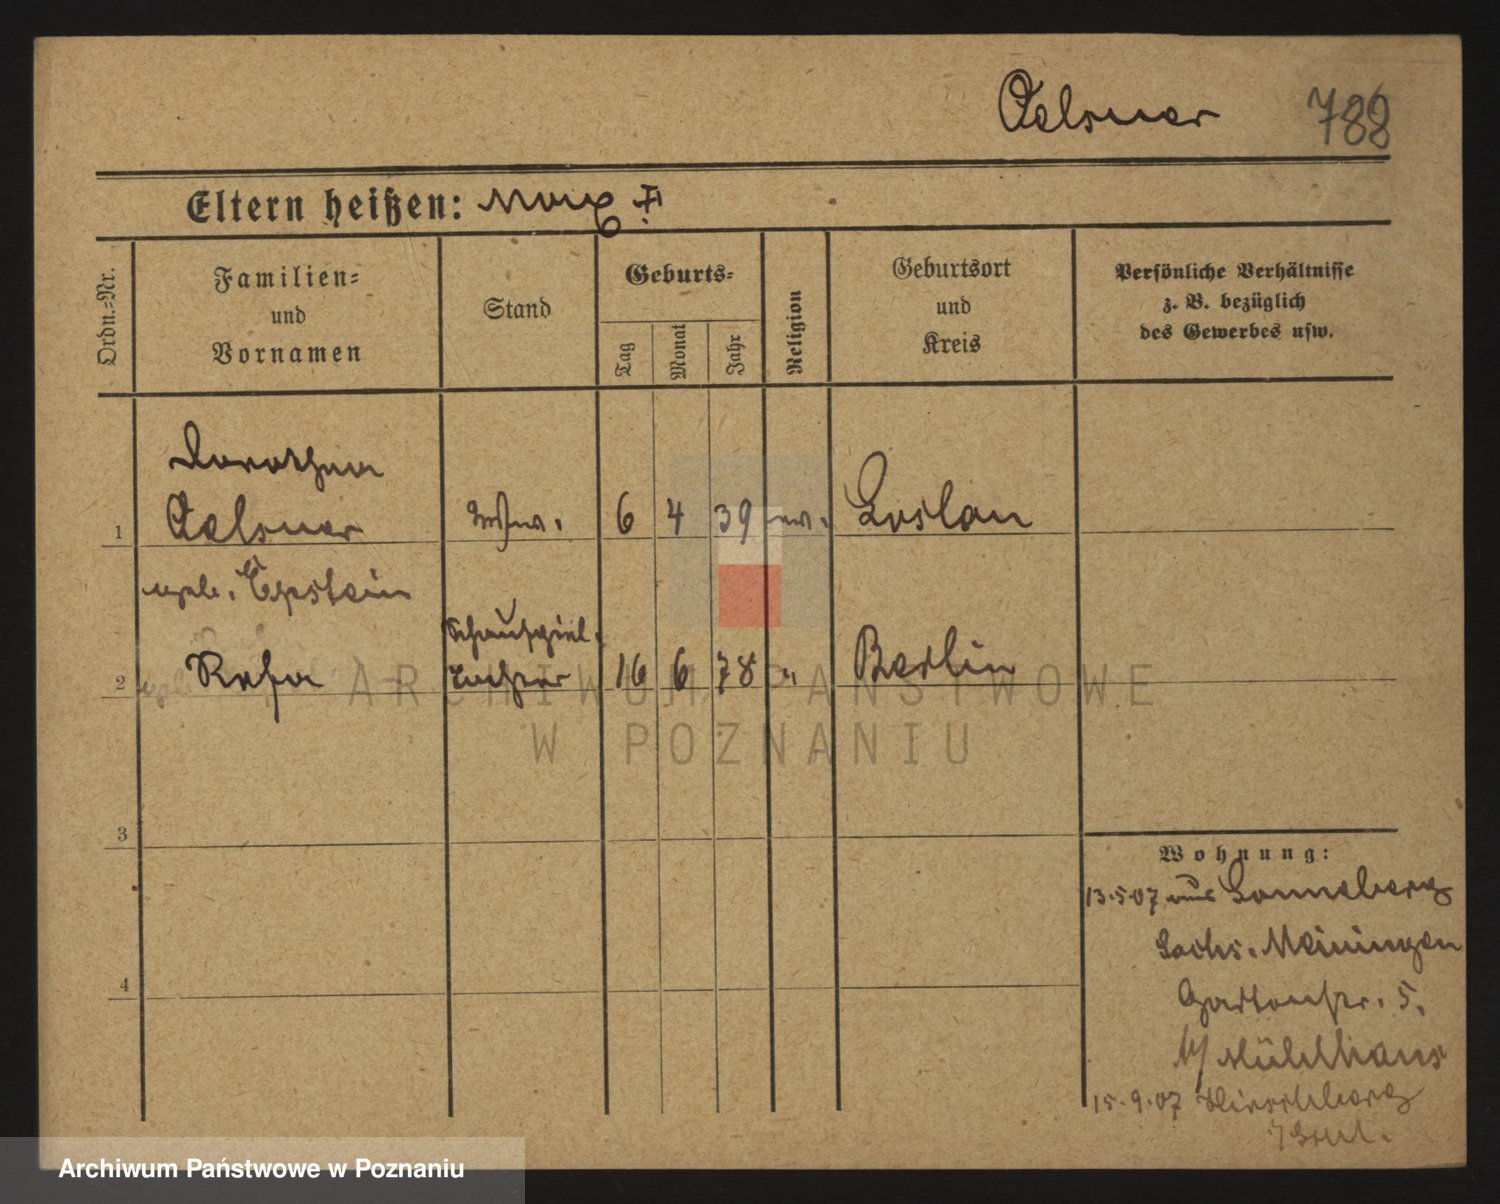 Oelsner 788
Eltern heißen: Max F.
Ordn.-Nr.
Familien-
und
Vornamen
Stand
Geburts-
Tag
Monat
Jahr
Religion
Geburtsort
und
Kreis
Persönliche Verhältnisse
z. B. bezüglich
des Gewerbes usw.
Dorothea
1 Oelsner Wwe. 6 4 39 Loslau
geb. Epstein
Schauspiel-
2 Rosa 16 6 78 " Berlin
3
4
Wohnung:
13.5.07 aus Sonneberg
Sachs. Meiningen
Gartenstr. 5.
b/ Mühlhaus
15.9.07 Hirschberg
ARCHIWUM PAŃSTWOWE
W POZNANIU
Archiwum Państwowe w Poznaniu